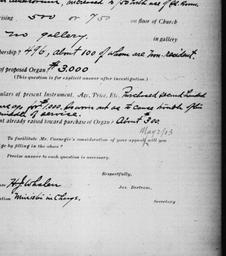 500 or 750 on floor of Church
no gallery. in gallery
bership? 496, about 100 of whom are non-resident.
of proposed Organ? $3.000
(This question is for explicit answer after investigation.)
ulars of present Instrument. Age, Price, Etc. Purchased second hand
ago, for $1,000.
of service.
nt already raised toward purchase of Organ? About $300.
May 2/13
To facilitate Mr. Carnegie's consideration of your appeal will you
oblige by filling in the above?
Precise answer to each question is necessary.
Respectfully,
Jas. Bertram,
Secretary
H.J. Whalen
ation Minister in Charge.